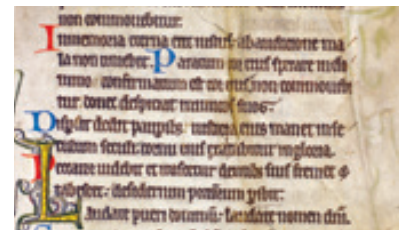 non commovebitur.
In memoria eterna erit iustus: ab auditione ma
la non timebit. Paratum cor eius sperare in do
mino: confirmatum est cor eius, non commovebi
tur donec despiciat inimicos suos.
Dispersit dedit pauperibus, iusticia eius manet in se
culum seculi: cornu eius exaltabitur in gloria.
Peccator videbit et irascetur dentibus suis fremet &
tabescet: desiderium peccatorum peribit.
Laudate pueri dominum: laudate nomen dni.